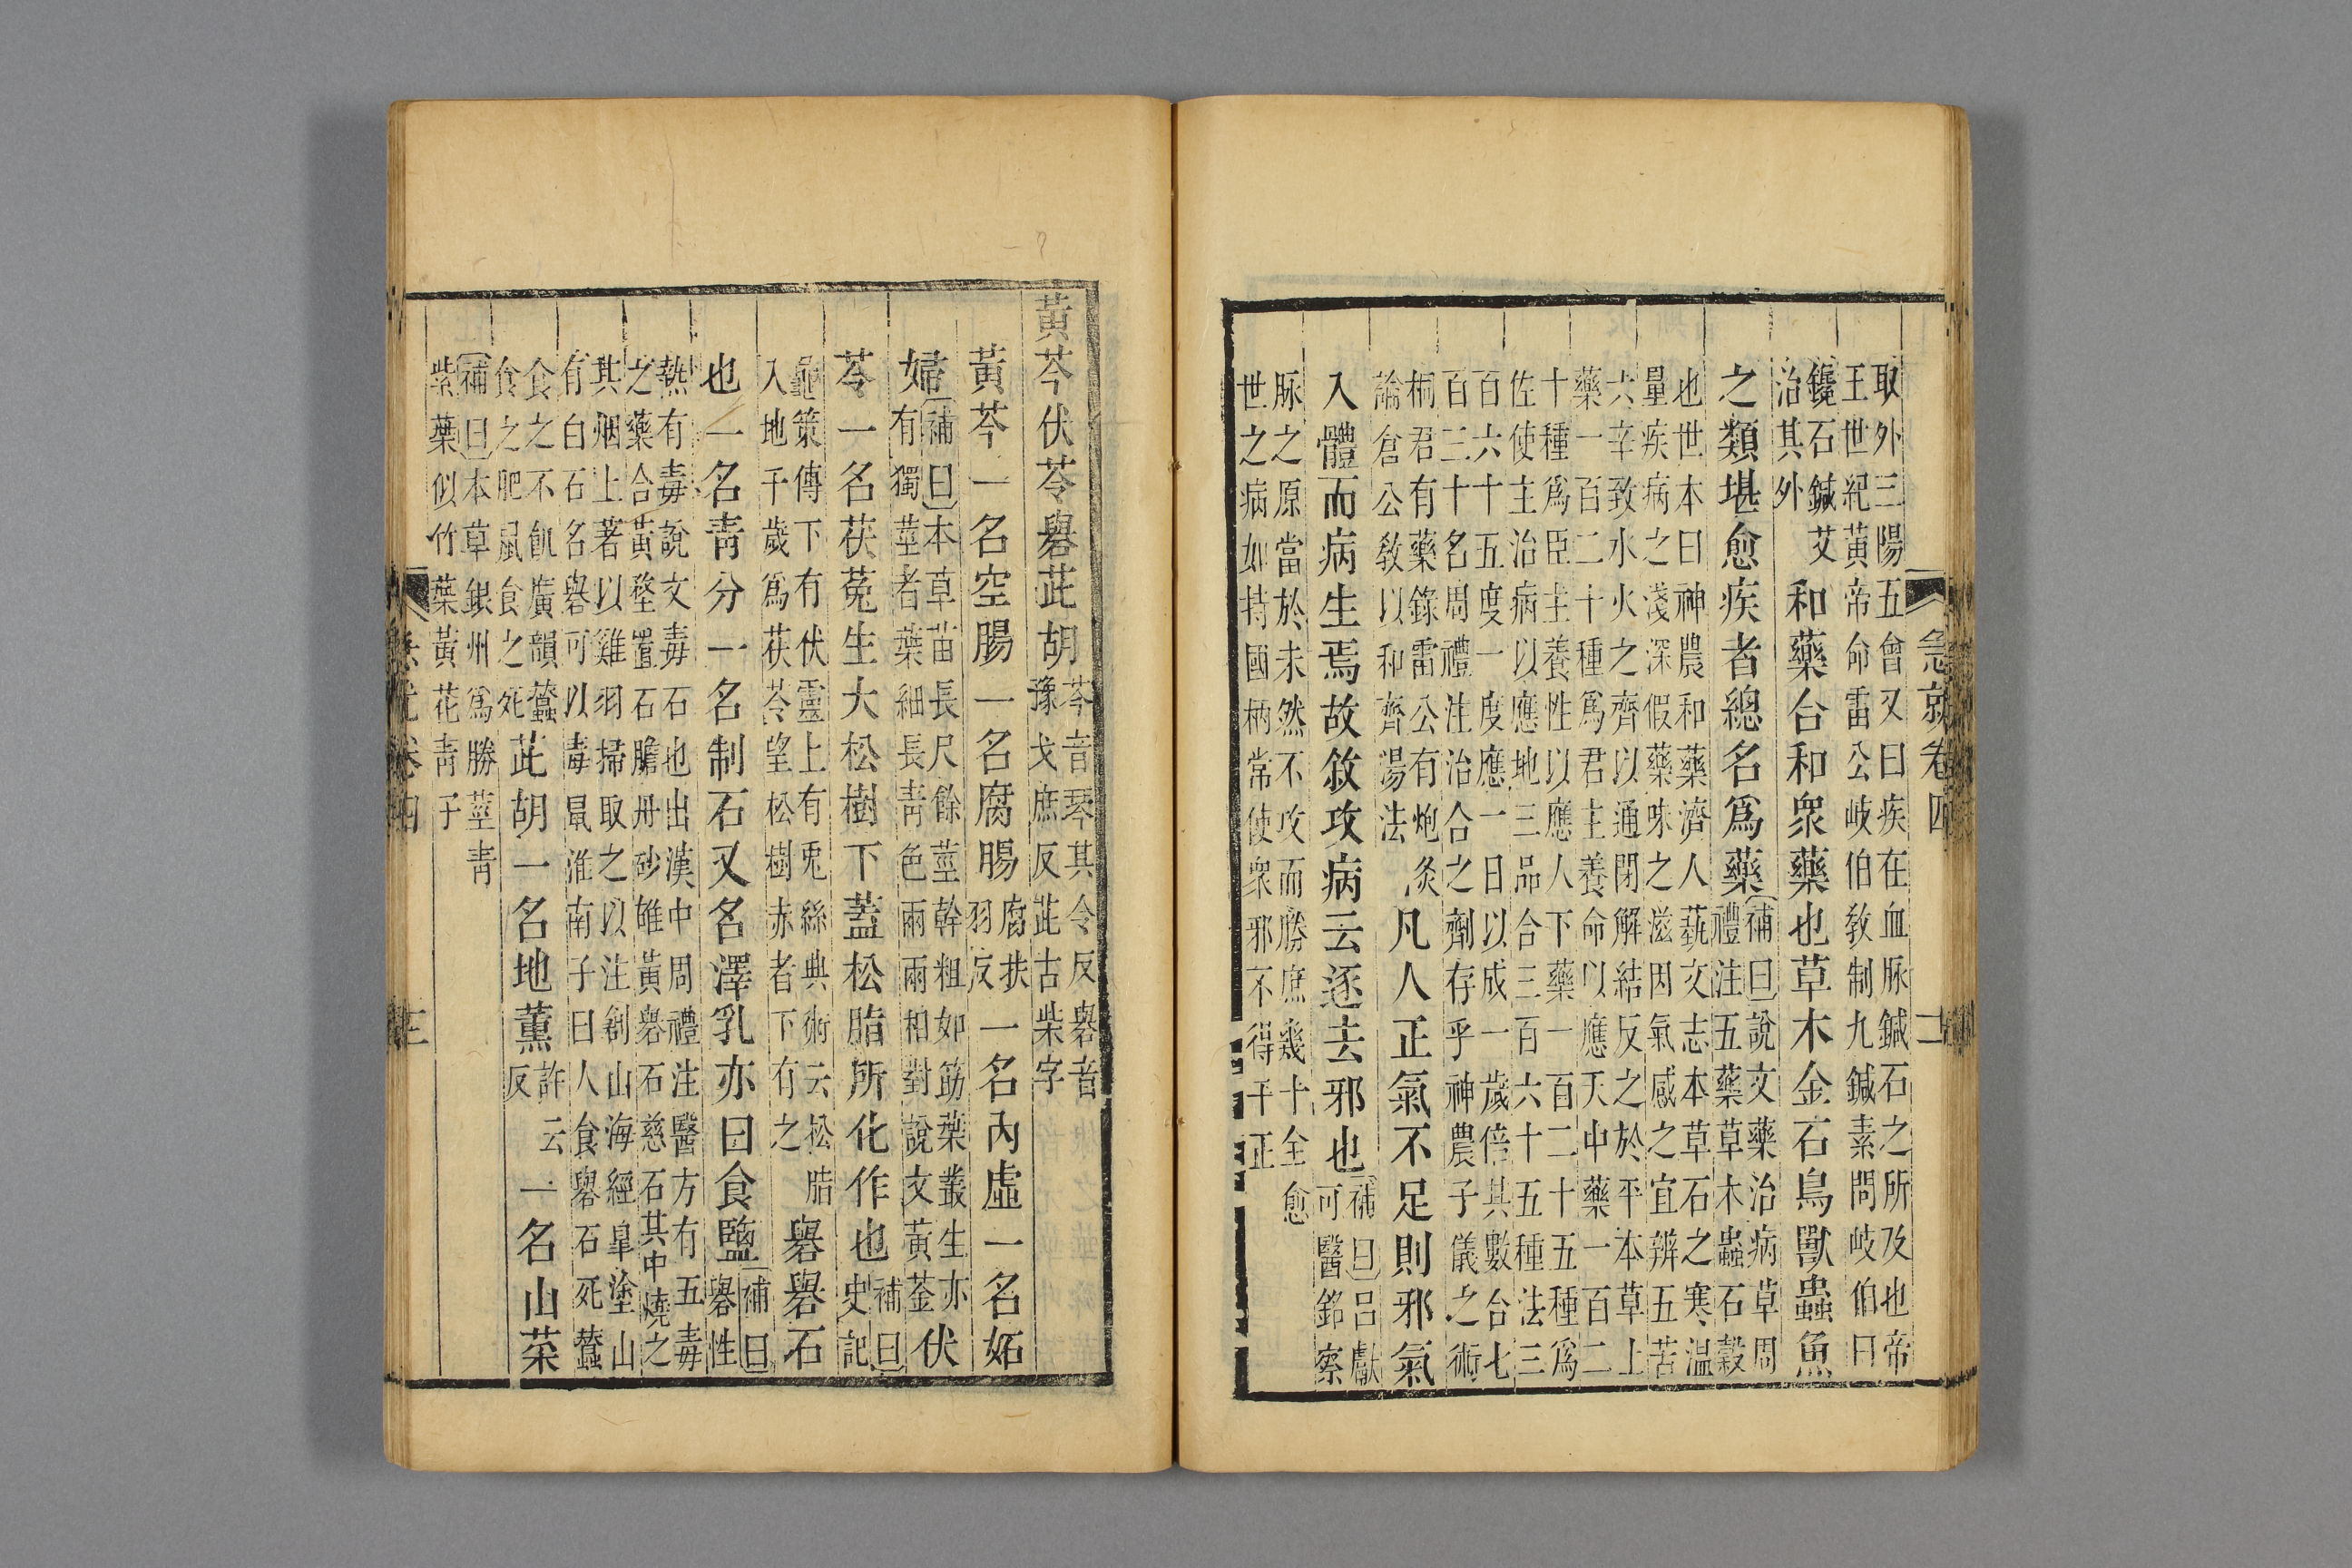 急就卷四
二
取外三陽五會又曰疾在血脉鍼石之所及也帝
王世紀黃帝命雷公岐伯敎制九鍼素問岐伯曰
鑱石鍼艾
治其外
和藥合和衆藥也草木金石鳥獸蟲魚
之類堪愈疾者總名爲藥
補曰說文藥治病草周
禮注五藥草木蟲石穀
也世本曰神農和藥濟人藝文志本草石之寒溫
量疾病之淺深假藥味之滋因氣感之宜辨五苦
六辛致水火之齊以通閉解結反之於平本草上
藥一百二十種爲君主養命以應天中藥一百二
十種爲臣主養性以應人下藥一百二十五種爲
佐使主治病以應地三品合三百六十五種法三
百六十五度一度應一日以成一歲倍其數合七
百三十名周禮注治合之劑存乎神農子儀之術
桐君有藥錄雷公有炮炙
論倉公敎以和齊湯法
凡人正氣不足則邪氣
入體而病生焉故敘攻病云逐去邪也
補曰呂獻
可醫銘察
脉之原當於未然不攻而勝庶幾十全愈
世之病如持國柄常使衆邪不得干正
黃芩伏苓礜茈胡
芩音琴其令反礜音
豫戈庶反茈古柴字
黃芩一名空腸一名腐腸
腐扶
羽反
一名內虛一名妬
婦
補曰本草苗長尺餘莖幹粗如筯葉叢生亦
有獨莖者葉細長青色兩兩相對說文黃菳
伏
苓一名茯菟生大松樹下蓋松脂所化作也
補曰
史記
龜策傳下有伏靈上有兎絲典術云松脂
入地千歲爲茯苓望松樹赤者下有之
礜礜石
也一名青分一名制石又名澤乳亦曰食鹽
補曰
礜性
熱有毒說文毒石也出漢中周禮注醫方有五毒
之藥合黃堥置石膽丹砂雄黃礜石慈石其中燒之
其烟上著以雞羽掃取之以注創山海經皐塗山
有白石名礜可以毒鼠淮南子曰人食礜石死蠶
食之不飢廣韻蠶
食之肥鼠食之死
茈胡一名地薰
許云
反
一名山菜
補曰本草銀州爲勝莖青
紫葉似竹葉黃花青子
卷四
三